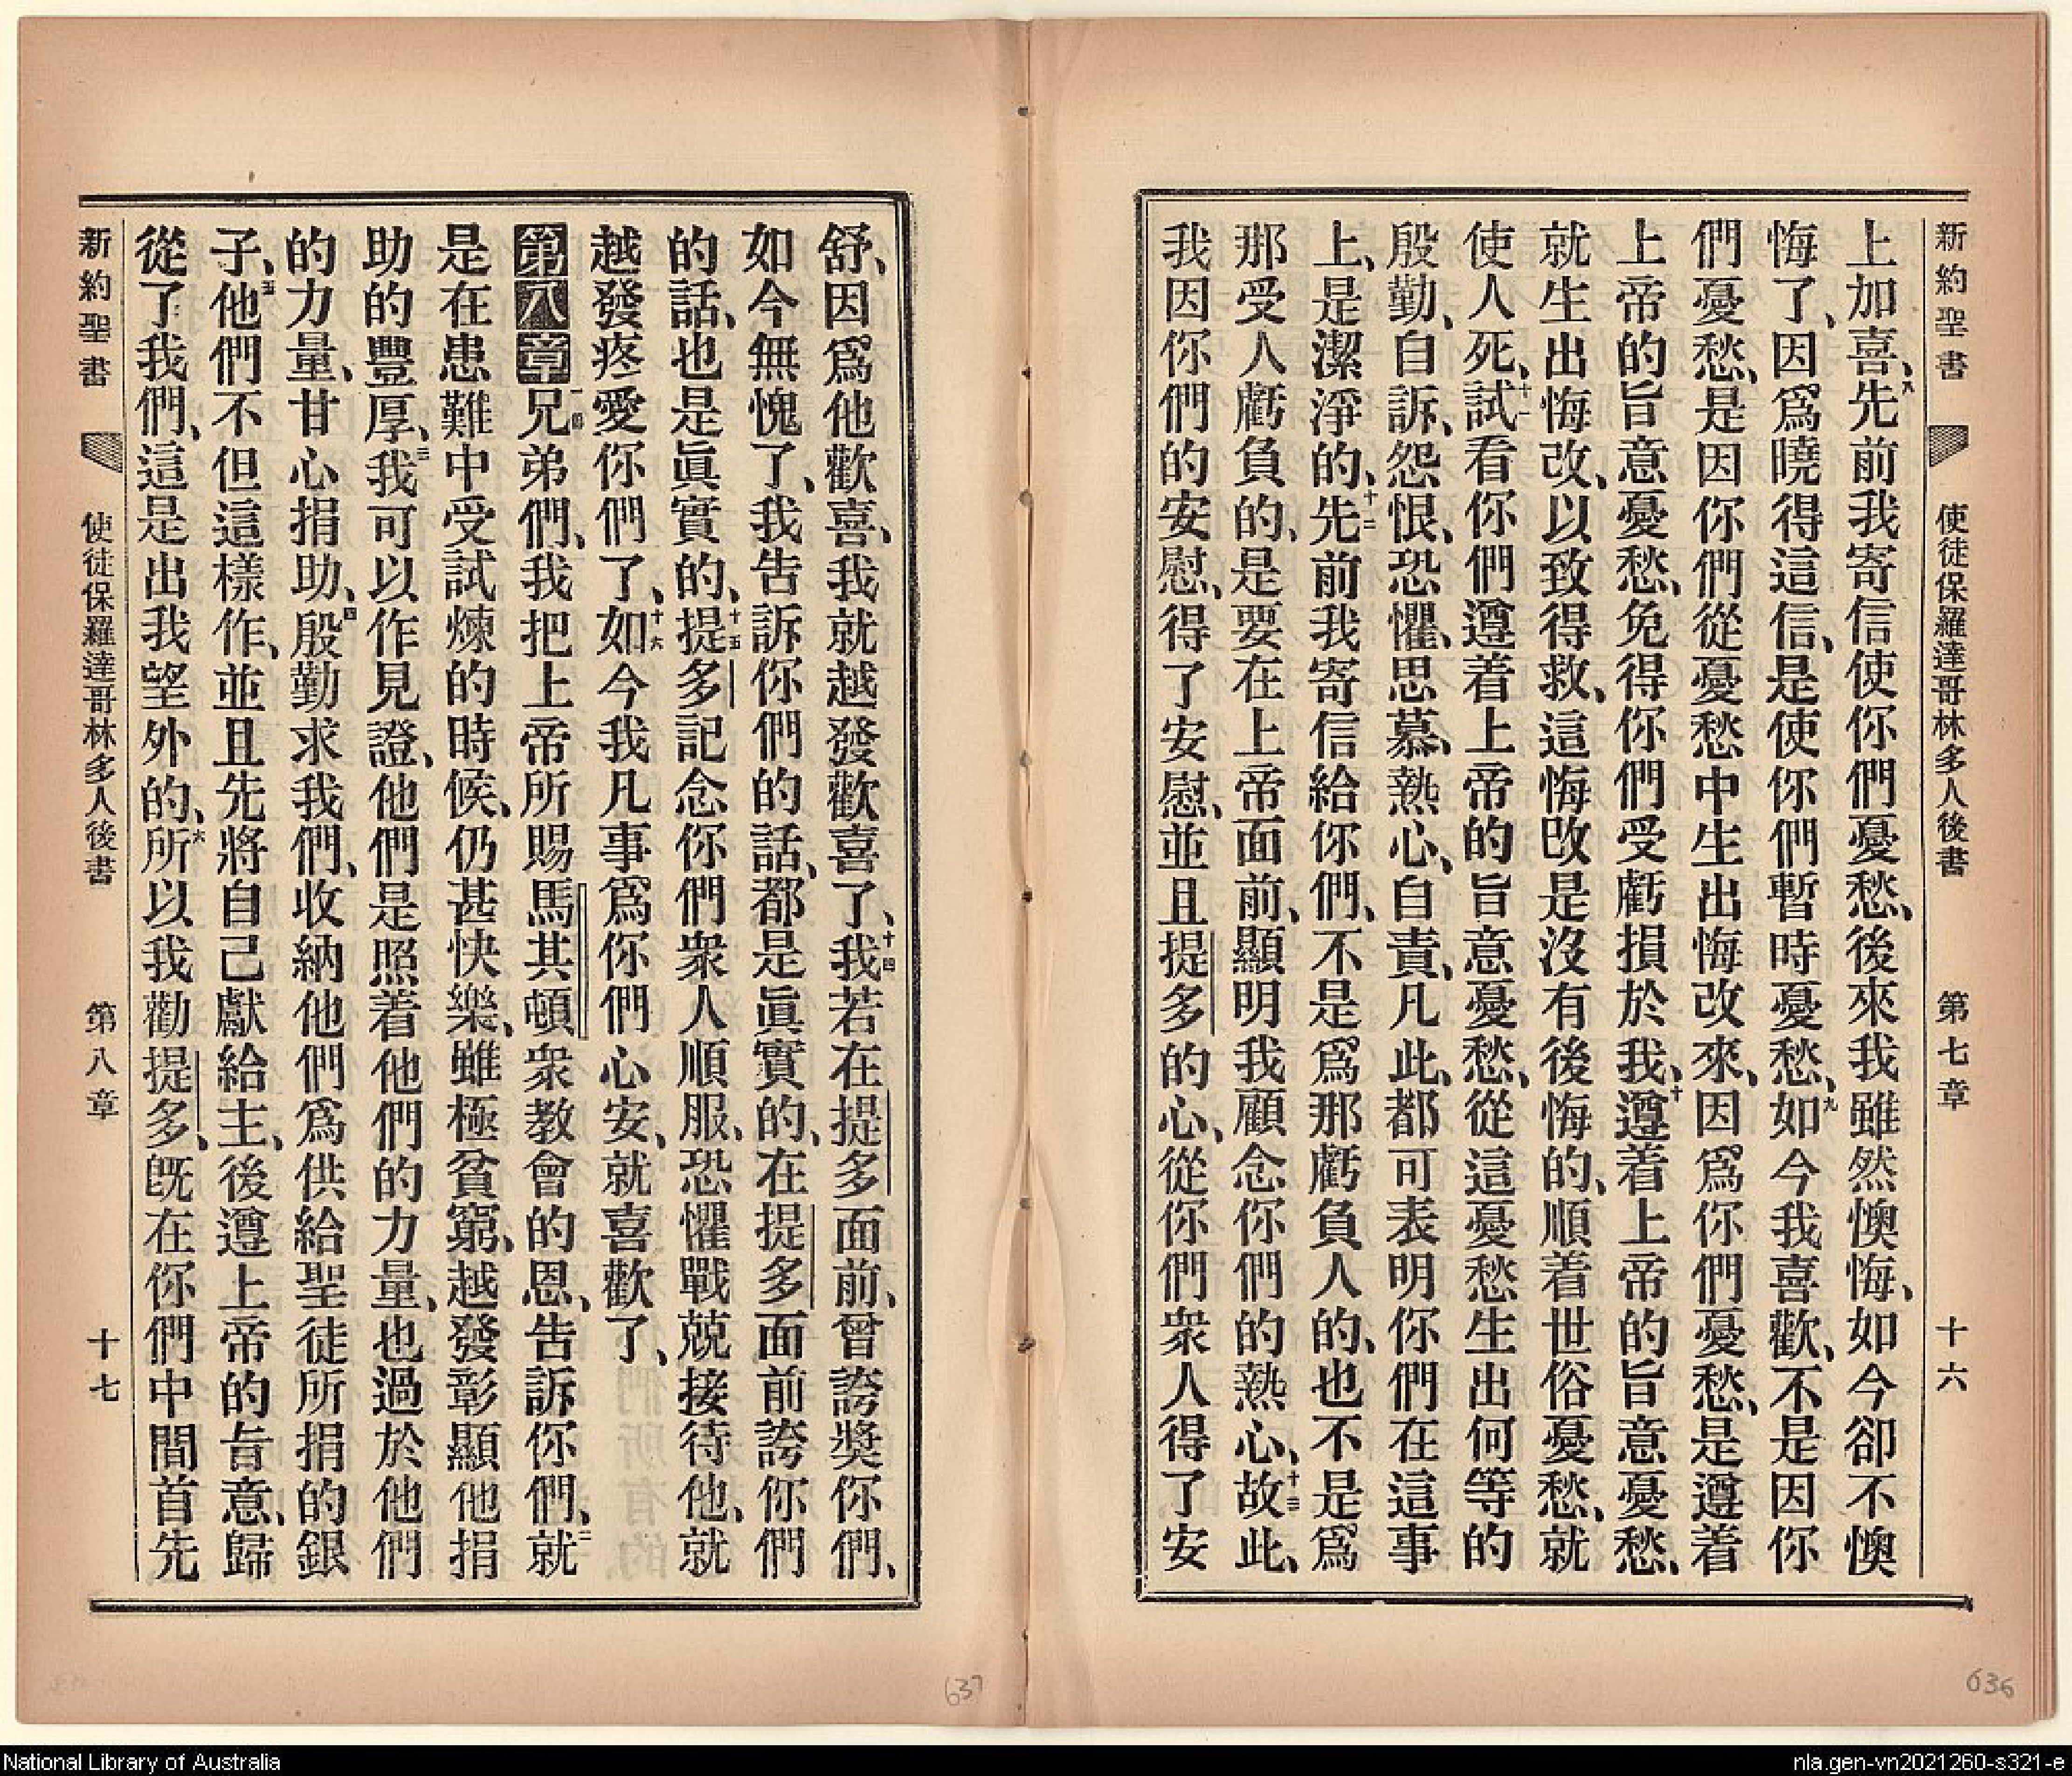 新約聖書 使徒保羅達哥林多人後書 第七章 十六
上加喜、八先前我寄信使你們憂愁、後來我雖然懊悔、如今卻不懊
悔了、因爲曉得這信、是使你們暫時憂愁、九如今我喜歡、不是因你
們憂愁、是因你們從憂愁中生出悔改來、因爲你們憂愁、是遵着
上帝的旨意憂愁、免得你們受虧損於我、十遵着上帝的旨意憂愁、
就生出悔改、以致得救、這悔改是沒有後悔的、順着世俗憂愁、就
使人死、十一試看你們遵着上帝的旨意憂愁、從這憂愁生出何等的
殷勤、自訴、怨恨、恐懼、思慕、熱心、自責、凡此、都可表明你們在這事
上、是潔淨的、十二先前我寄信給你們、不是爲那虧負人的、也不是爲
那受人虧負的、是要在上帝面前、顯明我顧念你們的熱心、十三故此、
我因你們的安慰、得了安慰、並且提多的心、從你們衆人得了安
舒、因爲他歡喜、我就越發歡喜了、十四我若在提多面前、曾誇奬你們、
如今無愧了、我告訴你們的話、都是眞實的、在提多面前誇你們
的話、也是眞實的、十五提多記念你們衆人順服、恐懼戰兢接待他、就
越發疼愛你們了、十六如今我凡事爲你們心安、就喜歡了、
第八章一節兄弟們、我把上帝所賜馬其頓衆教會的恩、告訴你們、二就
是在患難中受試煉的時候、仍甚快樂、雖極貧窮、越發彰顯他捐
助的豐厚、三我可以作見證、他們是照着他們的力量、也過於他們
的力量、甘心捐助、四殷勤求我們、收納他們爲供給聖徒所捐的銀
子、五他們不但這樣作、並且先將自己獻給主、後遵上帝的旨意、歸
從了我們、這是出我望外的、六所以我勸提多、旣在你們中間首先
新約聖書 使徒保羅達哥林多人後書 第八章 十七
637
636
National Library of Australia
nla.gen-vn2021260-s321-e